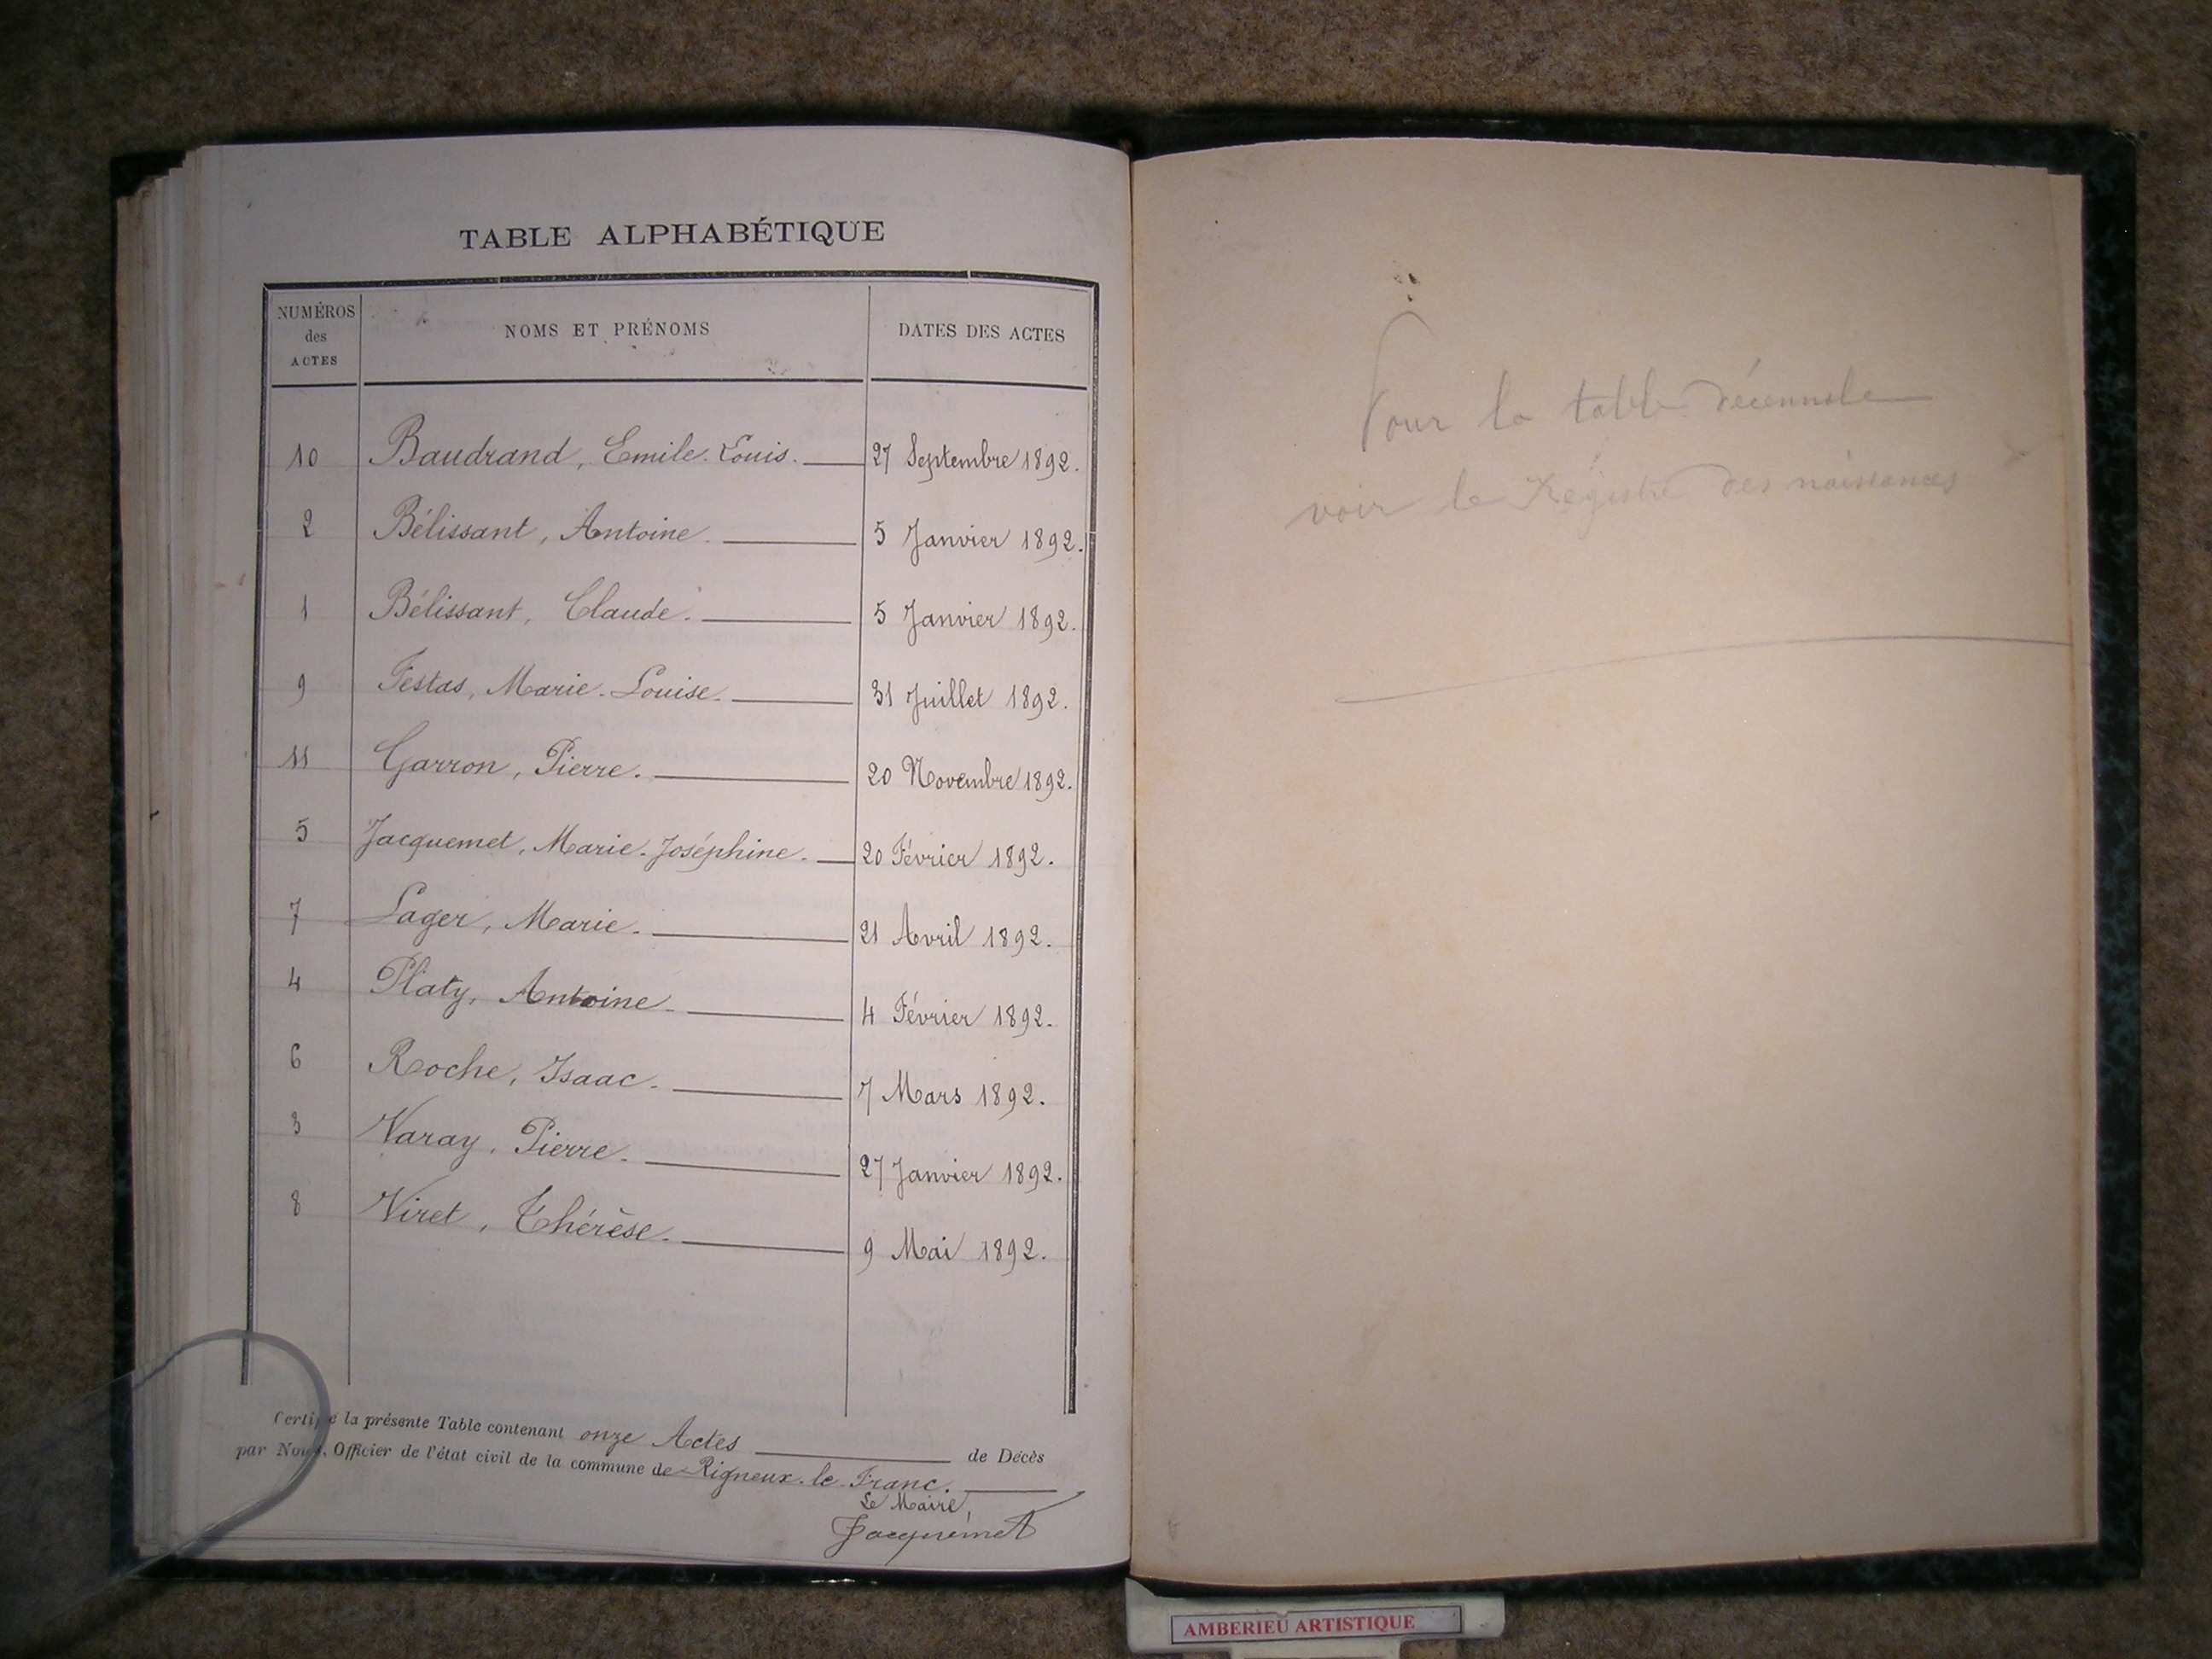 TABLE ALPHABÉTIQUE
NUMÉROS des ACTES NOMS ET PRÉNOMS DATES DES ACTES
10 Baudrand, Emile-Louis. 27 Septembre 1892.
2 Bélissant, Antoine. 5 Janvier 1892.
1 Bélissant, Claude. 5 Janvier 1892.
9 Festas, Marie-Louise. 31 Juillet 1892.
11 Garron, Pierre. 20 Novembre 1892.
5 Jacquemet, Marie-Joséphine. 20 Février 1892.
7 Lager, Marie. 21 Avril 1892.
4 Platy, Antoine. 4 Février 1892.
6 Roche, Isaac. 7 Mars 1892.
3 Varay, Pierre. 27 Janvier 1892.
8 Viret, Thérèse. 9 Mai 1892.
Certifié la présente Table contenant onze Actes de Décès
par Nous, Officier de l'état civil de la commune de Rigneux-le-Franc.
Le Maire,
Jacquemet
Pour la table décennale
voir le Régistre des naissances
AMBERIEU ARTISTIQUE